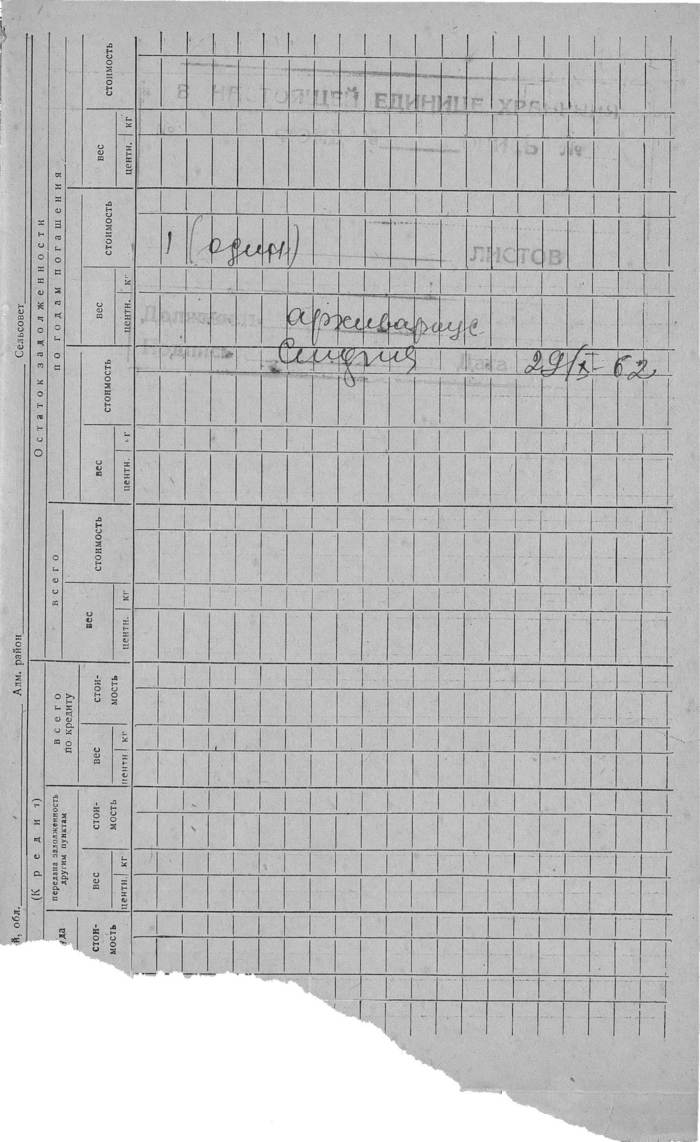 В НАСТОЯЩЕЙ ЕДИНИЦЕ ХРАНЕНИЯ
1 (один) ЛИСТОВ
Должность архивариус
Подпись Дата 29/X-62
Сельсовет
Адм. район
й, обл.
(Кредит)
Остаток задолженности
по годам погашения
стоимость
вес
центн. кг
стоимость
вес
центн. кг
стоимость
вес
центн. кг
всего
стоимость
вес
центн. кг
всего
по кредиту
стои-
мость
вес
центн кг
передана задолженность
другим пунктам
стои-
мость
вес
центн. кг
уда
стои-
мость